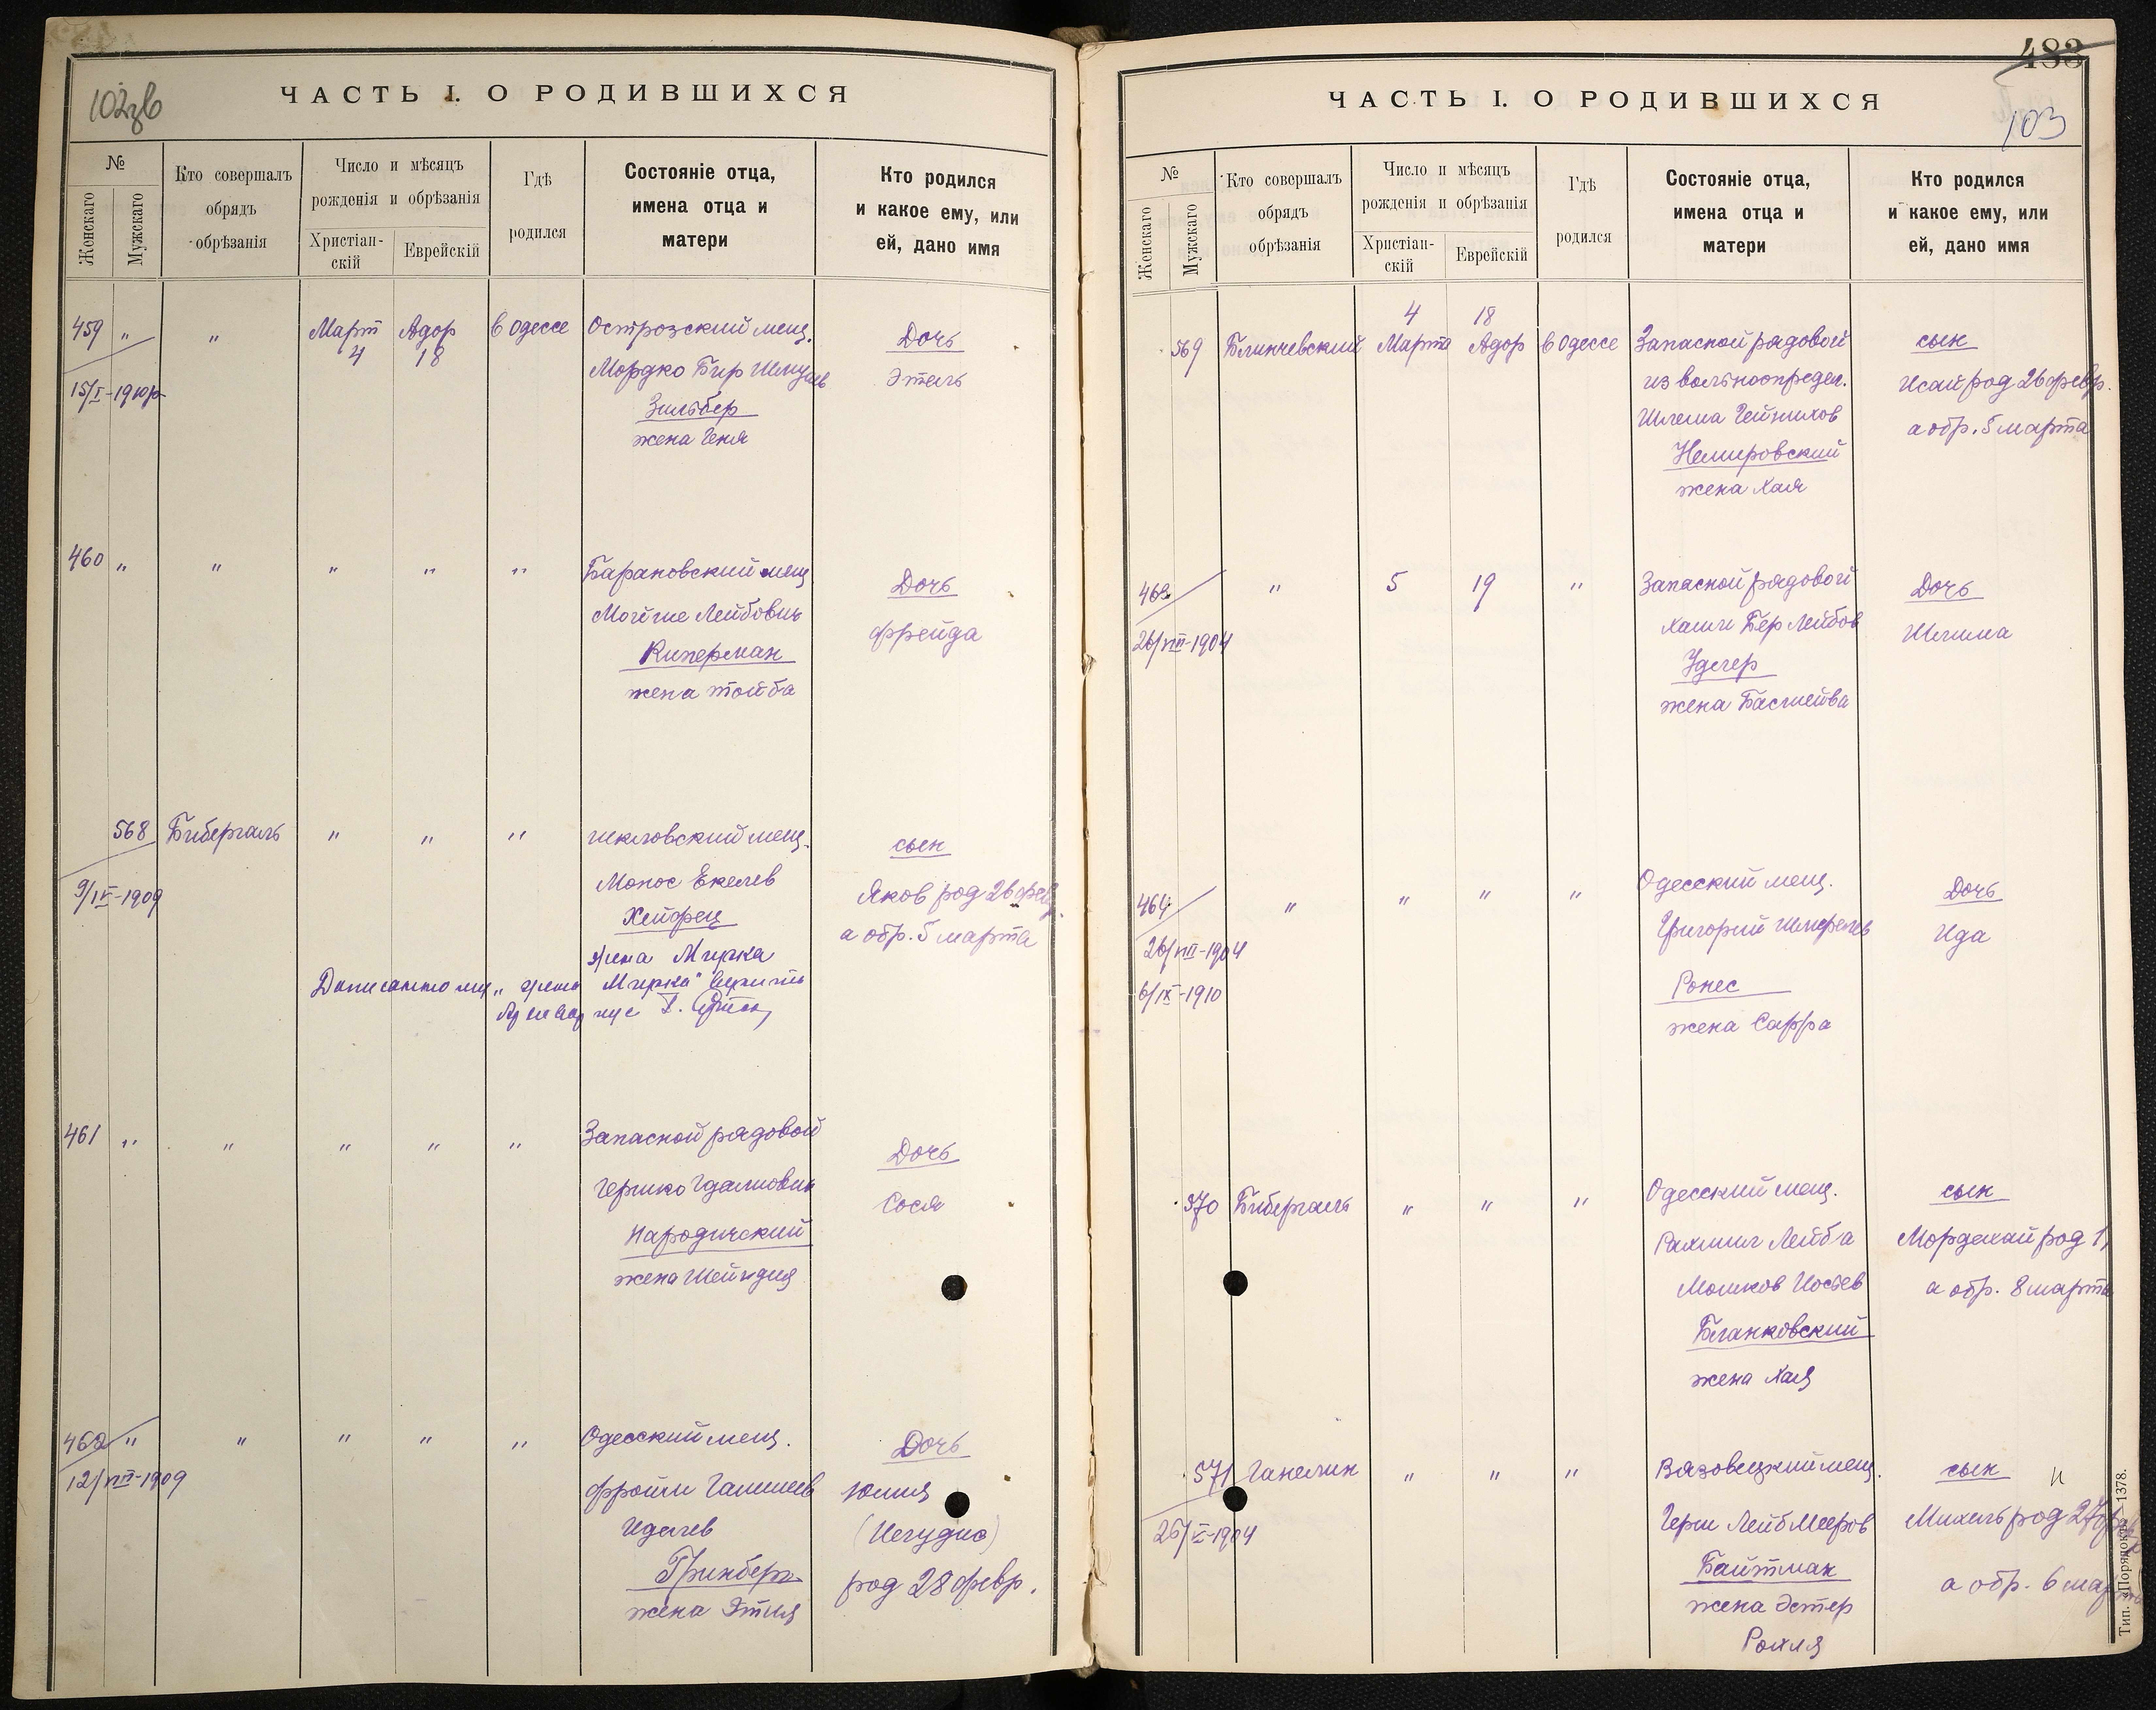 102зв
ЧАСТЬ I. О РОДИВШИХСЯ
№
Женскаго
Мужскаго
Кто совершалъ
обрядъ
обрѣзанія
Число и мѣсяцъ
рожденія и обрѣзанія
Христіан-
скій
Еврейскій
Гдѣ
родился
Состояніе отца,
имена отца и
матери
Кто родился
и какое ему, или
ей, дано имя
459 " " Март Адор в Одессе Острозский мещ. Дочь
4 18 Мордко Бир Этель
15/I-1910 Зильбер
жена Геня
460 " " " " " Барановский мещ Дочь
Мойше Лейбович Фрейда
Киперман
жена Тойба
568 Бибергаль " " " шкловский мещ. сын
9/IV-1909 Монос Екелев Яков род 26 фев.
Хейфец а обр. 5 марта
жена Мирка
"жена Мирка" верить
461 " " " " " Запасной рядовой Дочь
Гершко Сося
Народичский
жена Шейндля
462 " " " " " Одесский мещ. Дочь
12/VIII-1909 Фроим Юлия
Идалев
Гринберг род 28 февр.
жена Этля
483
103
ЧАСТЬ I. О РОДИВШИХСЯ
№
Женскаго
Мужскаго
Кто совершалъ
обрядъ
обрѣзанія
Число и мѣсяцъ
рожденія и обрѣзанія
Христіан-
скій
Еврейскій
Гдѣ
родился
Состояніе отца,
имена отца и
матери
Кто родился
и какое ему, или
ей, дано имя
4 18
569 Блинчевский Марта Адор в Одессе Запасной рядовой сын
из вольноопредел. Исай род 26 февр.
Шлема а обр. 5 марта
Немировский
жена Хая
463 " 5 19 " Запасной рядовой Дочь
26/VIII-1904 Хаим Бер Лейбов Шлима
Удлер
жена Басшейва
464 " " " " Одесский мещ. Дочь
26/VIII-1904 Григорий Ида
6/IX-1910 Ронес
жена Сарра
570 Бибергаль " " " Одесский мещ. сын
Рахмил Лейба Мордехай род 1,
Мошков Иосьев а обр. 8 марта
Бланковский
жена Хая
571 Ганелин " " " Вязовецкий мещ. сын
Герш Лейб Мееров Михель род 27 фев
Байтман а обр. 6 марта
жена Эстер
Рохля
Тип. «Порядокъ» 1378.